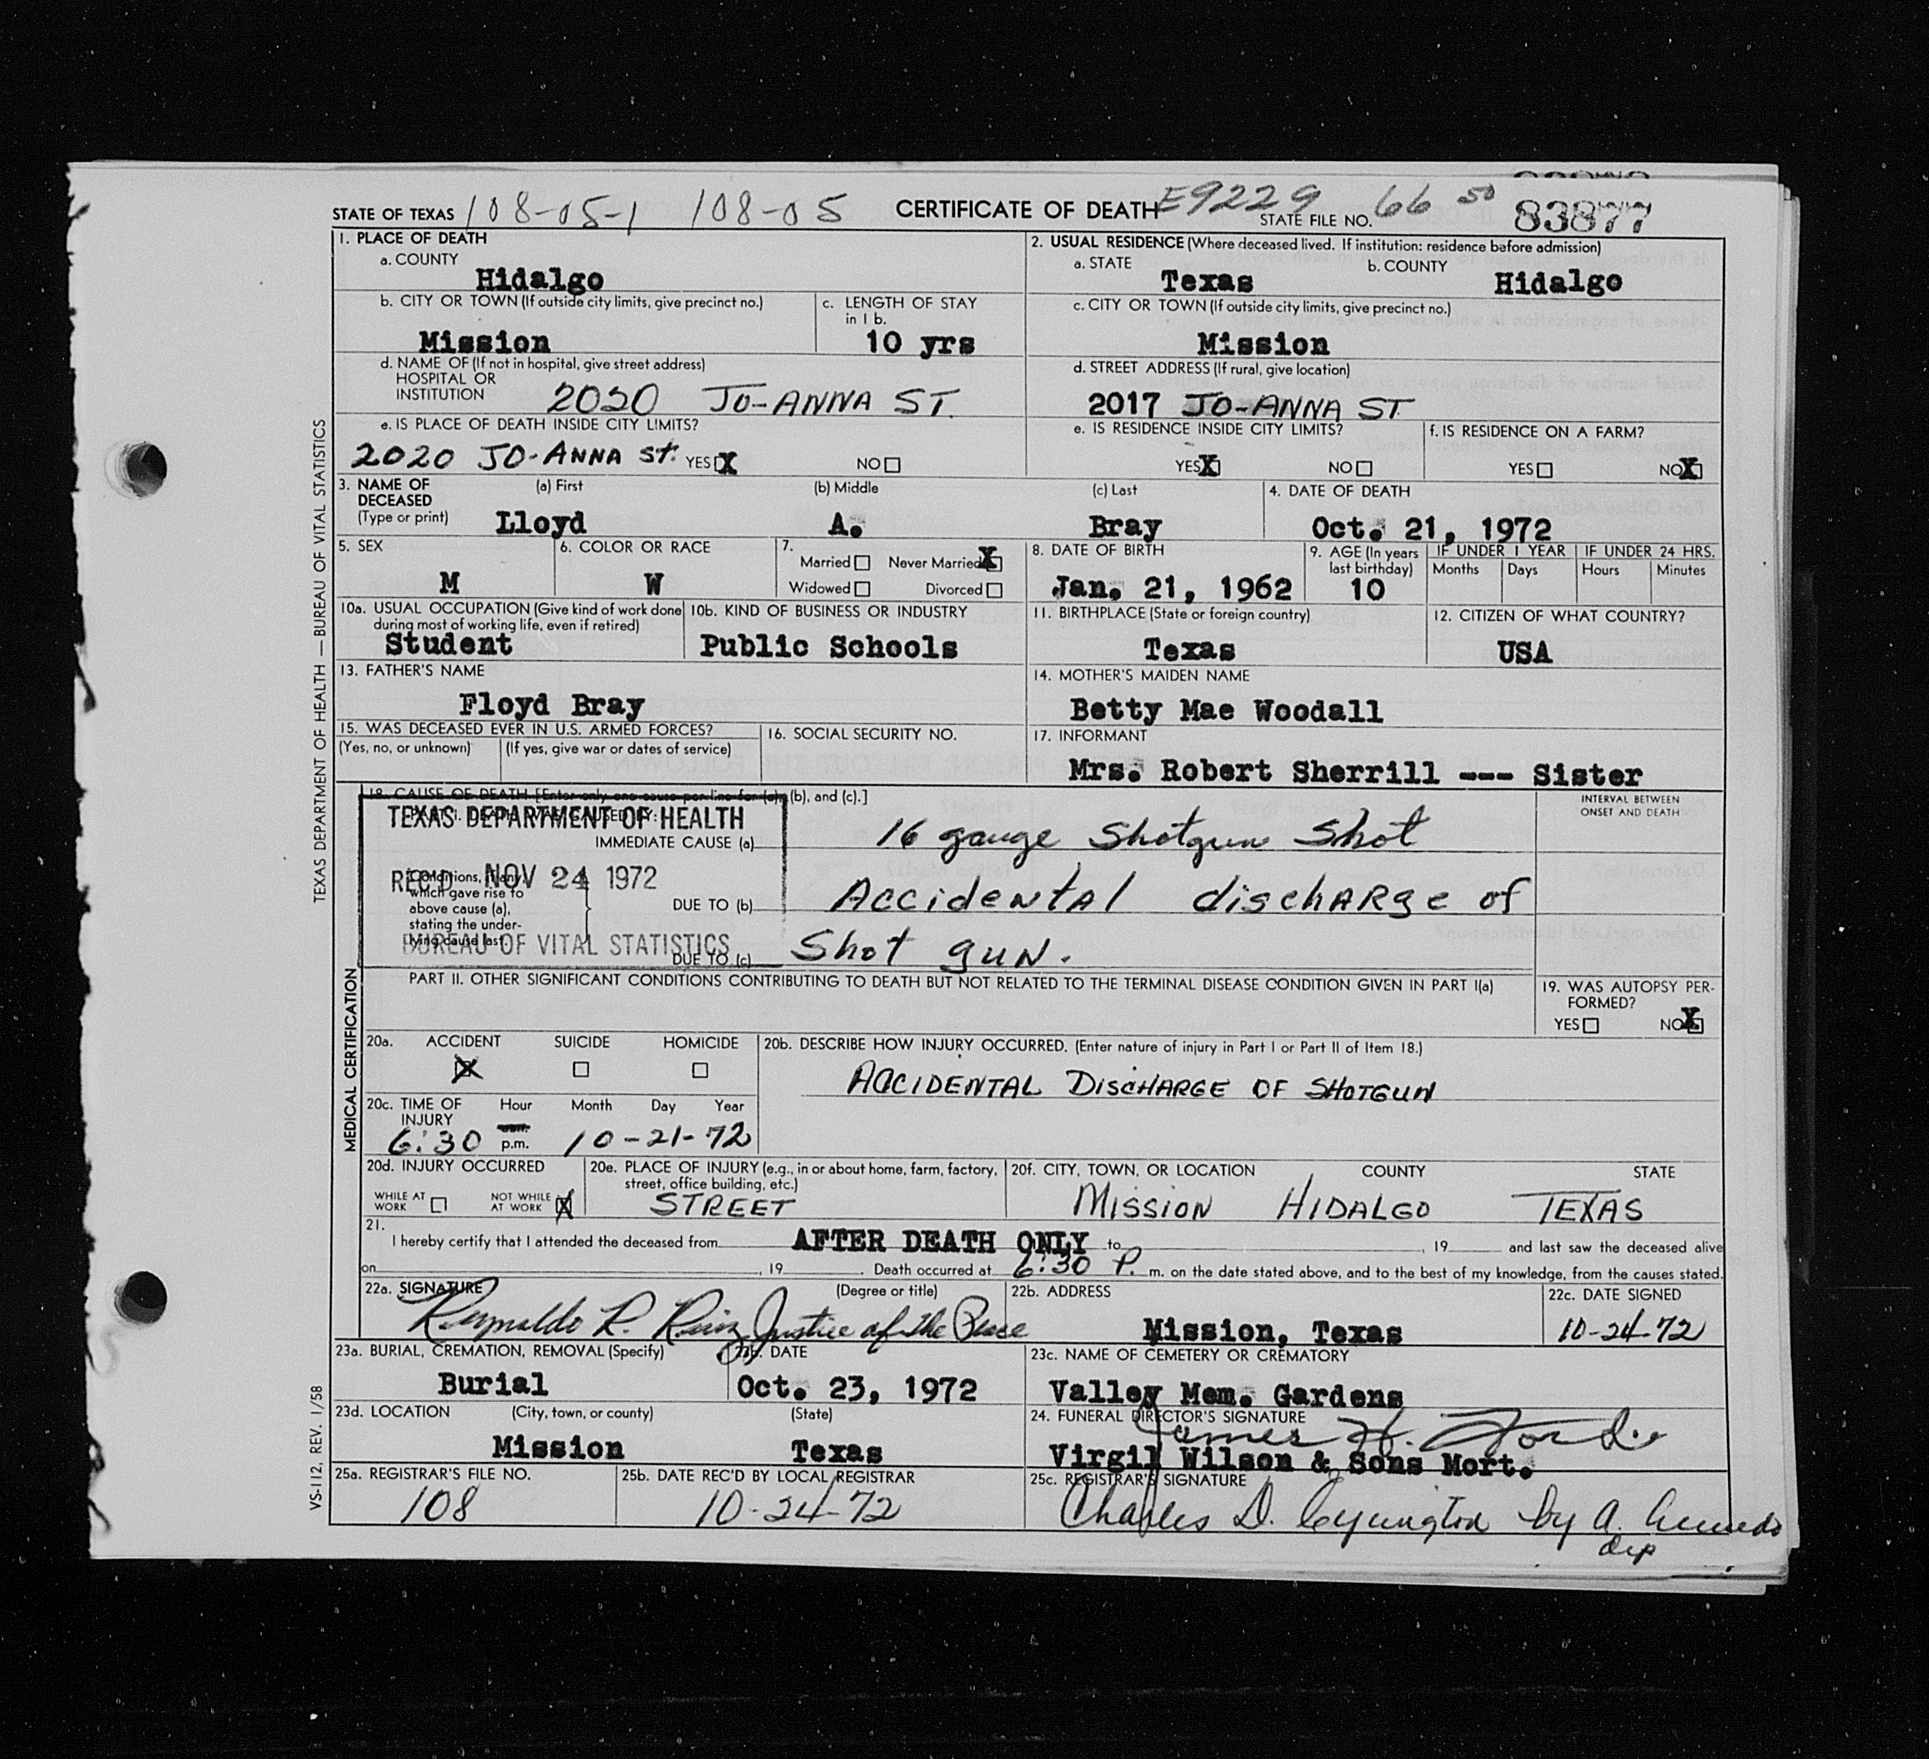 STATE OF TEXAS 108-05-1 108-05 CERTIFICATE OF DEATH E9229 STATE FILE NO. 66 50 83877
1. PLACE OF DEATH
a. COUNTY
Hidalgo
2. USUAL RESIDENCE (Where deceased lived. If institution: residence before admission)
a. STATE b. COUNTY
Texas Hidalgo
b. CITY OR TOWN (If outside city limits, give precinct no.)
Mission
c. LENGTH OF STAY
in 1 b.
10 yrs
c. CITY OR TOWN (If outside city limits, give precinct no.)
Mission
d. NAME OF (If not in hospital, give street address)
HOSPITAL OR
INSTITUTION 2020 JO-ANNA ST.
d. STREET ADDRESS (If rural, give location)
2017 JO-ANNA ST
e. IS PLACE OF DEATH INSIDE CITY LIMITS?
2020 JO-ANNA St. YES X NO
e. IS RESIDENCE INSIDE CITY LIMITS?
YES X NO
f. IS RESIDENCE ON A FARM?
YES NO X
3. NAME OF (a) First (b) Middle (c) Last
DECEASED
(Type or print) Lloyd A. Bray
4. DATE OF DEATH
Oct. 21, 1972
5. SEX
M
6. COLOR OR RACE
W
7.
Married Never Married X
Widowed Divorced
8. DATE OF BIRTH
Jan. 21, 1962
9. AGE (In years
last birthday)
10
IF UNDER 1 YEAR IF UNDER 24 HRS.
Months Days Hours Minutes
10a. USUAL OCCUPATION (Give kind of work done
during most of working life, even if retired)
Student
10b. KIND OF BUSINESS OR INDUSTRY
Public Schools
11. BIRTHPLACE (State or foreign country)
Texas
12. CITIZEN OF WHAT COUNTRY?
USA
13. FATHER'S NAME
Floyd Bray
14. MOTHER'S MAIDEN NAME
Betty Mae Woodall
15. WAS DECEASED EVER IN U.S. ARMED FORCES?
(Yes, no, or unknown) (If yes, give war or dates of service)
16. SOCIAL SECURITY NO.
17. INFORMANT
Mrs. Robert Sherrill --- Sister
18. CAUSE OF DEATH [Enter only one cause per line for (a), (b), and (c).]
INTERVAL BETWEEN
ONSET AND DEATH
TEXAS DEPARTMENT OF HEALTH
REC'D NOV 24 1972
BUREAU OF VITAL STATISTICS
IMMEDIATE CAUSE (a) 16 gauge Shotgun Shot
Conditions, if any,
which gave rise to
above cause (a),
stating the under-
lying cause last.
DUE TO (b) Accidental discharge of
DUE TO (c) Shot gun.
PART II. OTHER SIGNIFICANT CONDITIONS CONTRIBUTING TO DEATH BUT NOT RELATED TO THE TERMINAL DISEASE CONDITION GIVEN IN PART I(a)
19. WAS AUTOPSY PER-
FORMED?
YES NO X
20a. ACCIDENT SUICIDE HOMICIDE
X
20b. DESCRIBE HOW INJURY OCCURRED. (Enter nature of injury in Part I or Part II of Item 18.)
ACCIDENTAL DISCHARGE OF SHOTGUN
20c. TIME OF Hour Month Day Year
INJURY
6:30 p.m. 10-21-72
20d. INJURY OCCURRED
WHILE AT
WORK
NOT WHILE
AT WORK X
20e. PLACE OF INJURY (e.g., in or about home, farm, factory,
street, office building, etc.)
STREET
20f. CITY, TOWN, OR LOCATION COUNTY STATE
MISSION HIDALGO TEXAS
21.
I hereby certify that I attended the deceased from AFTER DEATH ONLY to , 19 and last saw the deceased alive
on , 19 . Death occurred at 6:30 P. m. on the date stated above, and to the best of my knowledge, from the causes stated.
22a. SIGNATURE (Degree or title)
Reynaldo R. Ruiz Justice of the Peace
22b. ADDRESS
Mission, Texas
22c. DATE SIGNED
10-24-72
23a. BURIAL, CREMATION, REMOVAL (Specify)
Burial
23b. DATE
Oct. 23, 1972
23c. NAME OF CEMETERY OR CREMATORY
Valley Mem. Gardens
23d. LOCATION (City, town, or county) (State)
Mission Texas
24. FUNERAL DIRECTOR'S SIGNATURE
James H.
Virgil Wilson & Sons Mort.
25a. REGISTRAR'S FILE NO.
108
25b. DATE REC'D BY LOCAL REGISTRAR
10-24-72
25c. REGISTRAR'S SIGNATURE
Charles D. by A.
dep
TEXAS DEPARTMENT OF HEALTH — BUREAU OF VITAL STATISTICS
MEDICAL CERTIFICATION
VS-112, REV. 1/58